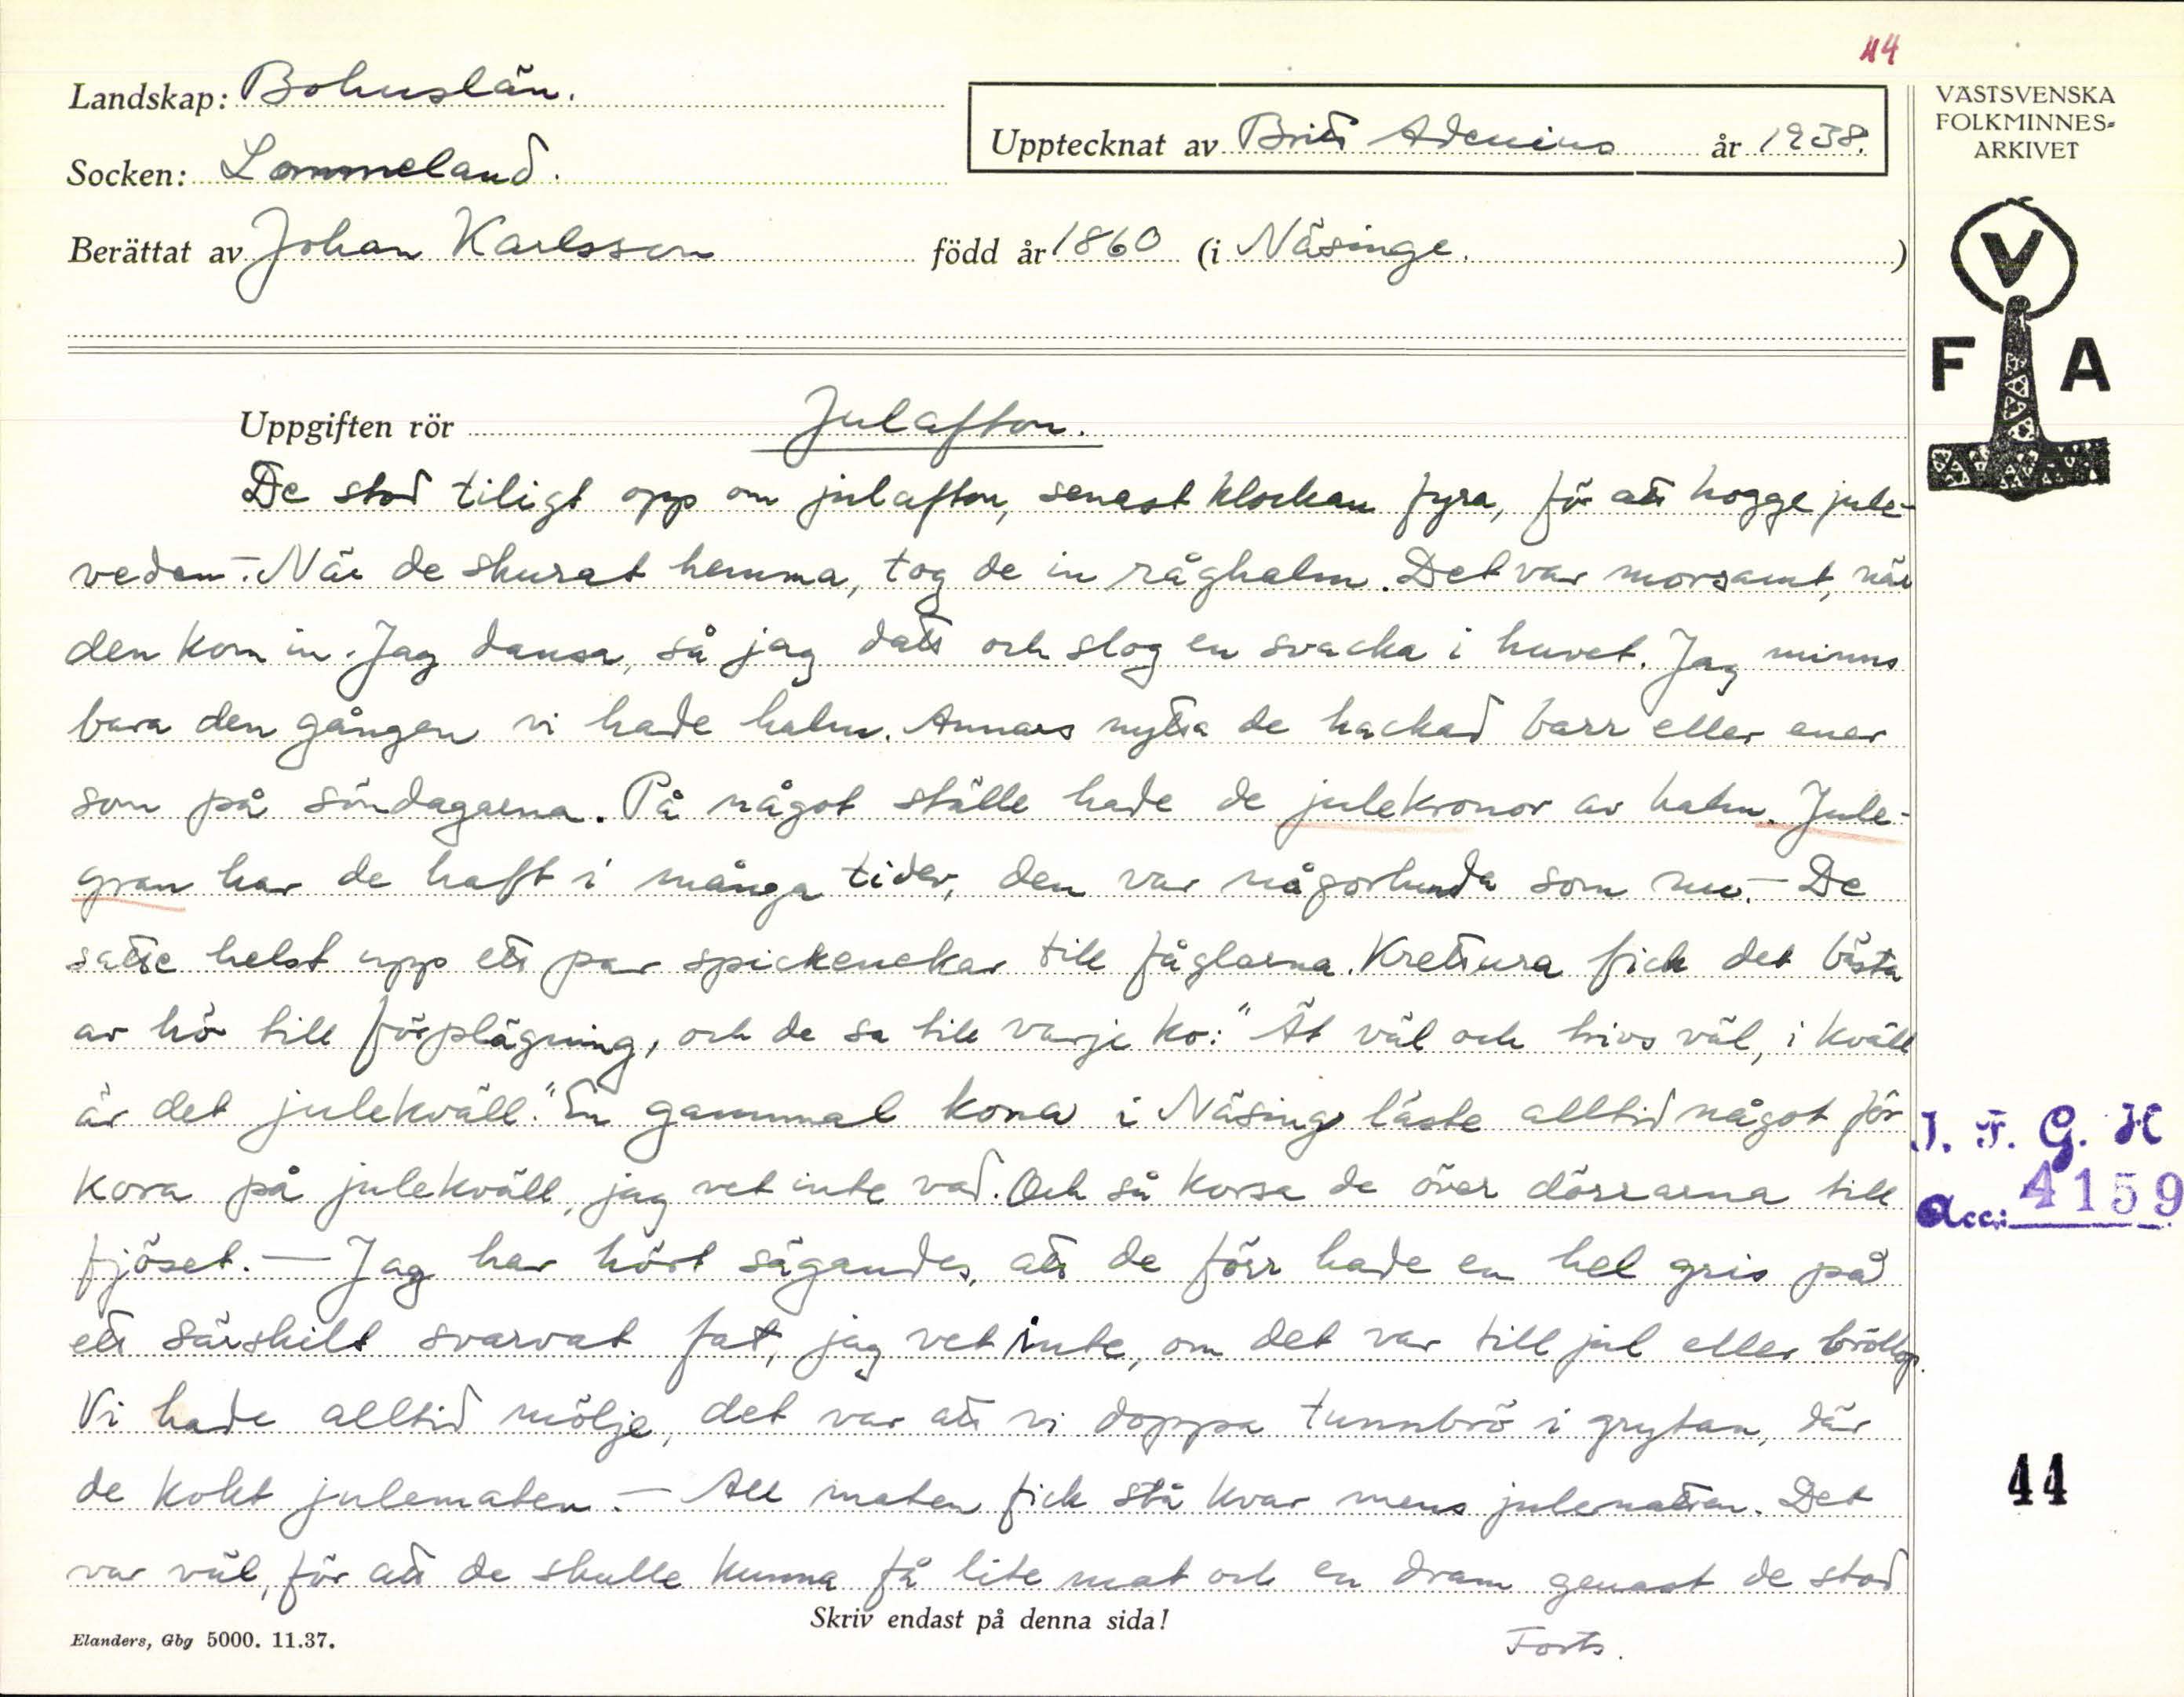 44
Landskap: Bohuslän.
Upptecknat av Britt Adenius år 1938.
VÄSTSVENSKA
FOLKMINNES-
ARKIVET
Socken: Lommeland.
Berättat av Johan Karlsson född år 1860 (i Näsinge.)
V
F A
Uppgiften rör Julafton.
De stod tiligt opp om julafton, senast klockan fyra, för att hogge jule-
veden. – När de skurat hemma, tog de in råghalm. Det var morsamt, när
den kom in. Jag dansa, så jag datt och slog en svacka i huvet. Jag minns
bara den gången vi hade halm. Annars nytta de hackad barr eller ener
som på söndagarna. På något ställe hade de julekronor av halm. Jule-
gran har de haft i många tider, den var någorlunda som nu. – De
satte helst upp ett par spickenekar till fåglarna. Krettura fick det bästa
av hö till förplägning, och de sa till varje ko: "Ät väl och trivs väl, i kväll
är det julekväll." En gammal kona i Näsinge läste alltid något för
kora på julekväll, jag vet inte vad. Och så korsa de över dörrarna till
fjöset. – Jag har hört sägandes, att de förr hade en hel gris på
ett särskilt svarvat fat, jag vet inte, om det var till jul eller bröllop.
Vi hade alltid mölje, det var att vi doppa tunnbrö i grytan, där
de kokt julematen. – All maten fick stå kvar mens julenatten. Det
var väl, för att de skulle kunna få lite mat och en dram genast de stod
J. F. G. H
Acc.: 4159
44
Skriv endast på denna sida!
Elanders, Gbg 5000. 11.37.
Forts.